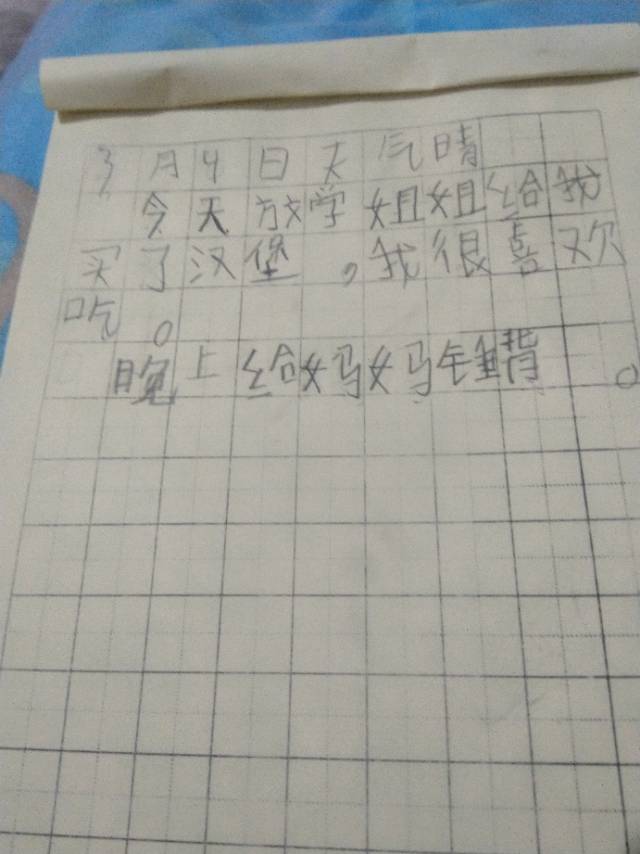 3月4日天气晴
今天放学姐姐给我
买了汉堡。我很喜欢
吃。
晚上给妈妈锤背。